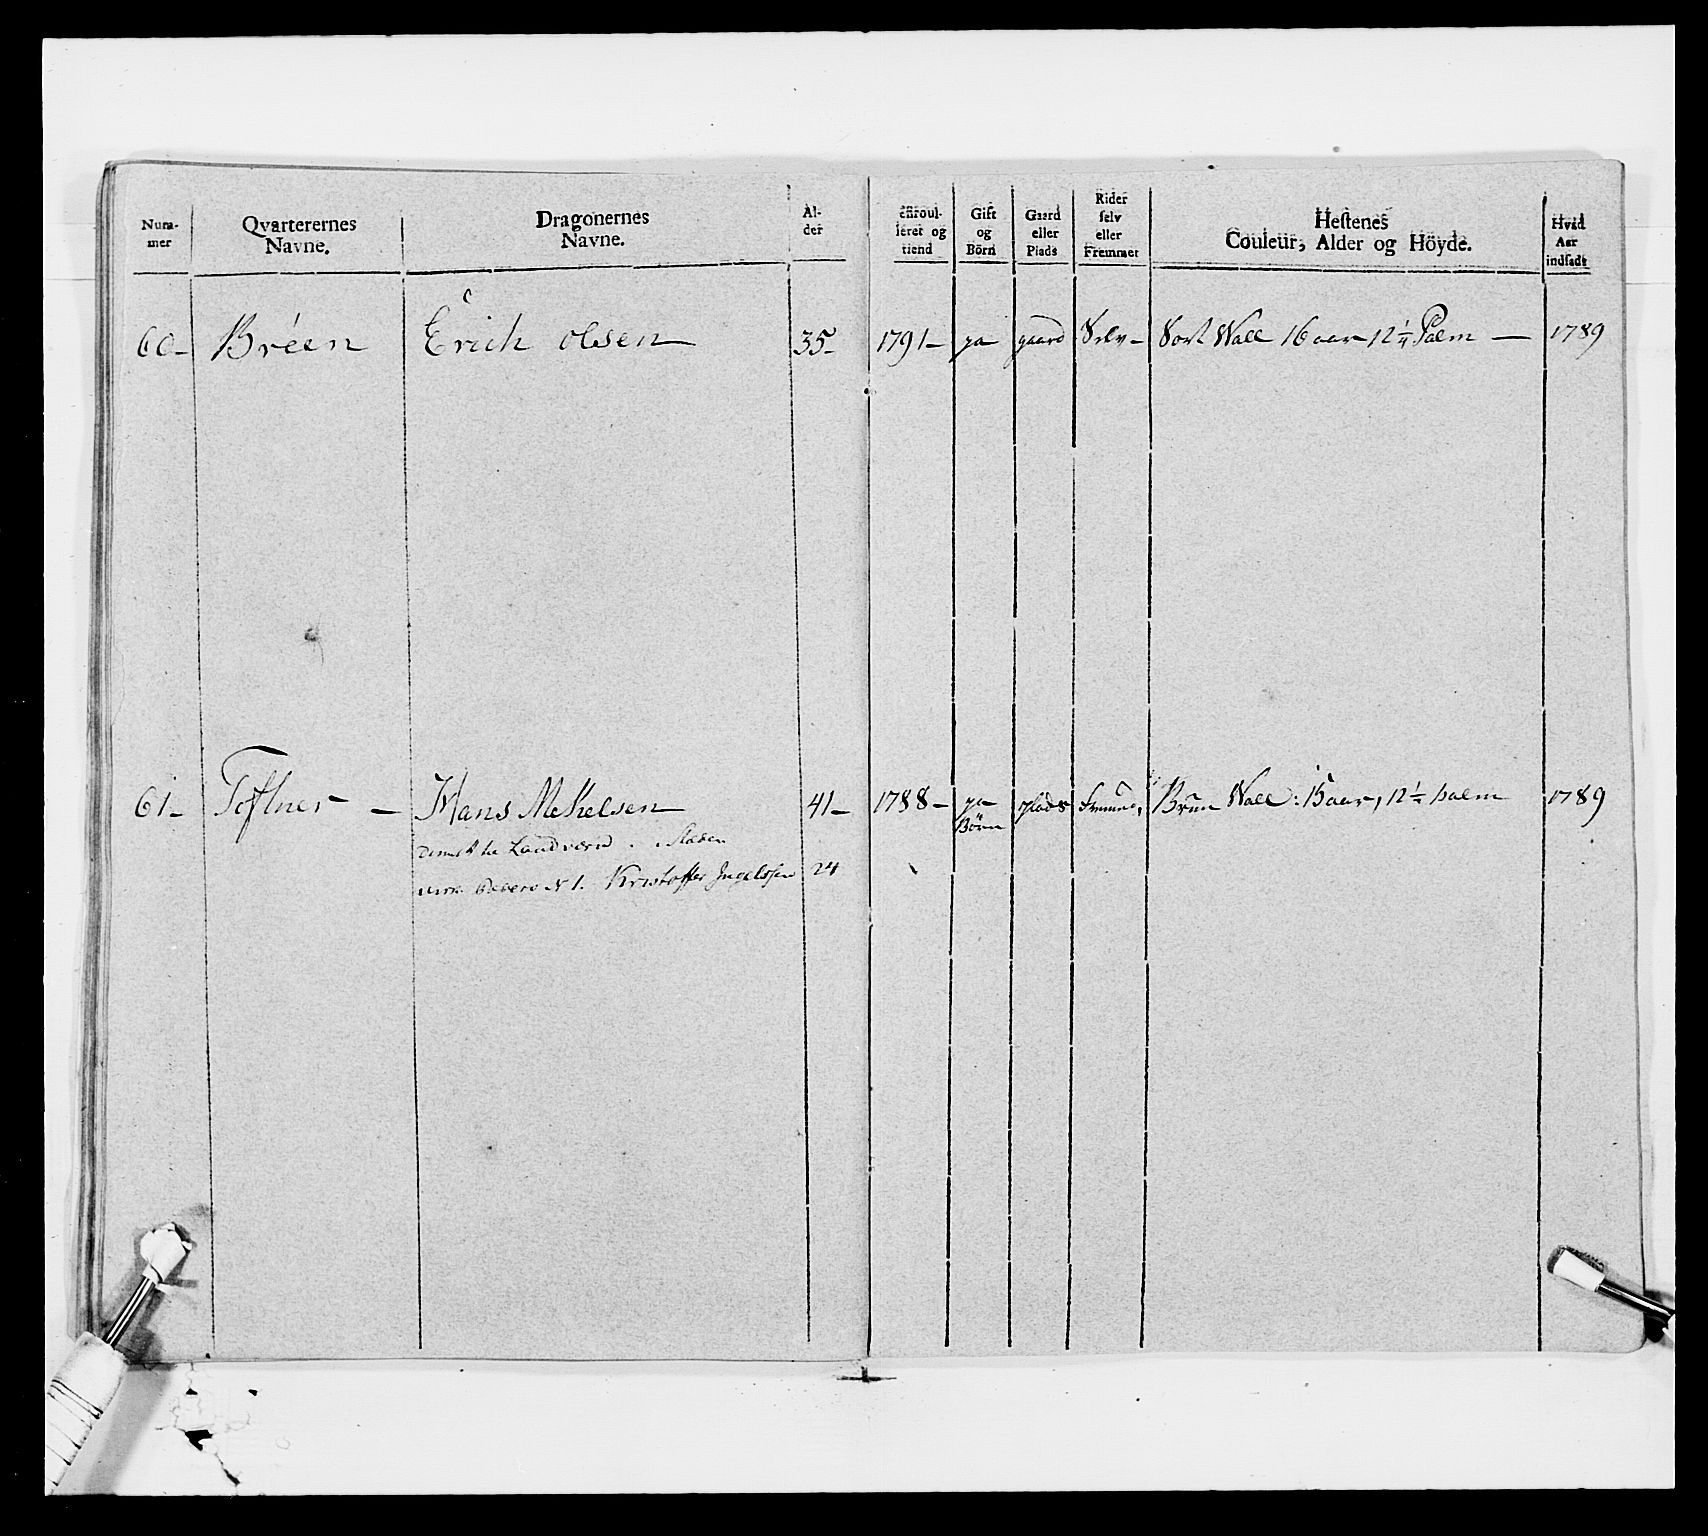 Num-
mer
Qvarterernes
Navne.
Dragonernes
Navne.
Al-
der
enroul-
leret og
tiend
Gift
og
Börn
Gaard
eller
Plads
Rider
selv
eller
Fremmet
Hestenes
Couleur, Alder og Höyde.
Hvad
Aar
indsadt
60- Bréen Erich olsen 35- 1791- ja gaard Selv- Sort Wall 16 aar 12 1/4 Palm — 1789
61- Toftner - Hans Mekelsen 41- 1788- ja plads Bruun Wall: 15 aar, 12 1/4 palm 1789
Börn
Landværn
N 1. Kristoffer Ingelssen 24